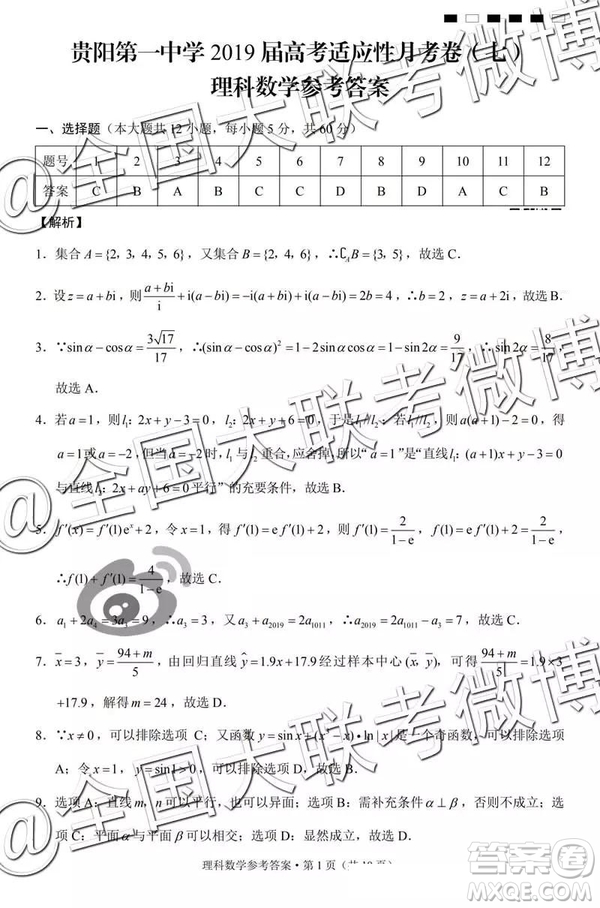 贵阳第一中学 2019 届高考适应性月考卷（七）
理科数学参考答案
一、选择题（本大题共 12 小题，每小题 5 分，共 60 分）
题号 1 2 3 4 5 6 7 8 9 10 11 12
答案 C B A C C C D B D A C B
【解析】
1．集合 A={2, 3, 4, 5, 6}，又集合 B={2, 4, 6}，∴∁_A B={3, 5}，故选 C．
2．设 z=a+bi，则 (a+bi)/i+i(a−bi)=−i(a+bi)+i(a−bi)=2b=4，∴b=2，z=a+2i，故选 B．
3．∵sinα−cosα=3√17/17，∴(sinα−cosα)²=1−2sinαcosα=1−sin2α=9/17，∴sin2α=8/17，
故选 A．
4．若 a=1，则 l₁：2x+y−3=0，l₂：2x+y+6=0，于是 l₁//l₂；若 l₁//l₂，则 a(a+1)−2=0，得
a=1 或 a=−2，但当 a=−2 时，l₁ 与 l₂ 重合，应舍掉，所以“a=1”是“直线 l₁：(a+1)x+y−3=0
与直线 l₂：2x+ay+6=0 平行”的充要条件，故选 C．
5．f′(x)=f′(1)eˣ+2，令 x=1，得 f′(1)=e f′(1)+2，则 f′(1)=2/(1−e)，f(1)=2/(1−e)，
∴f(1)+f′(1)=4/(1−e)，故选 C．
6．a₁+2a₄=3a₃=9，∴a₃=3，又 a₃+a₂₀₁₉=2a₁₀₁₁，∴2a₁₀₁₁−a₂₀₁₉=a₃=3，故选 C．
7．x̄=3，ȳ=(94+m)/5，由回归直线 ŷ=1.9x+17.9 经过样本中心 (x̄, ȳ)，可得 (94+m)/5=1.9×3
+17.9，解得 m=24，故选 D．
8．∵x≠0，可以排除选项 C；又函数 y=sinx+(x³−x)•ln|x| 是奇函数，可以排除选项
A；令 x=1，y=sin1>0，可以排除选项 D，故选 B．
9．选项 A：直线 m，n 可能平行，也可以异面；选项 B：需补充条件 α⊥β，否则不成立；
选项 C：平面 α 与平面 β 可以相交；选项 D：显然成立，故选 D．
理科数学参考答案·第 1 页（共 10 页）
@全国大联考微博
@全国大联考微博
@全国大联考微博
答案圈
MXQE.COM